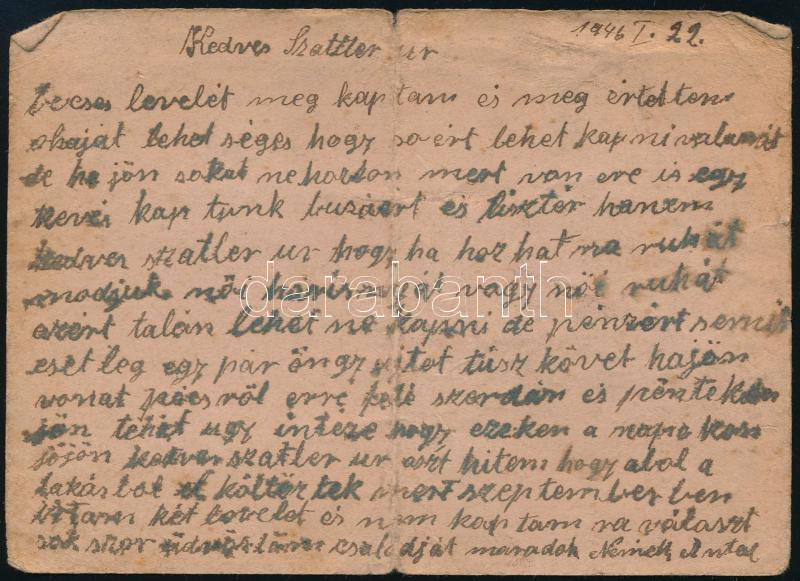 1946 I. 22.
Kedves Szattler ur
becses levelét meg kaptam és meg értettem
lehet séges hogy soért lehet kapni valamit
de ha jön sokat ne hozzon mert van ere is egy
kevés kap tunk buzáért és lisztér hanem
kedves szatler ur hogy ha hoz hat na ruhát
modjuk női vagy női ruhát
azért talán lehet ne kapni de pénzért semit
eset leg egy pár öngy ujtot tüsz követ ha jön
vonat pécsről erre felé szerdán és pénteken
jön tehát ugy intéze hogy ezeken a napo kon
jöjön kedves szatler ur aszt hitem hogy abol a
lakásbol el költöztek mert szeptember ben
irtam két levelet és nem kap tam ra választ
sok szor üdvözlöm csaladját maradok Nemek Antal
darabanth